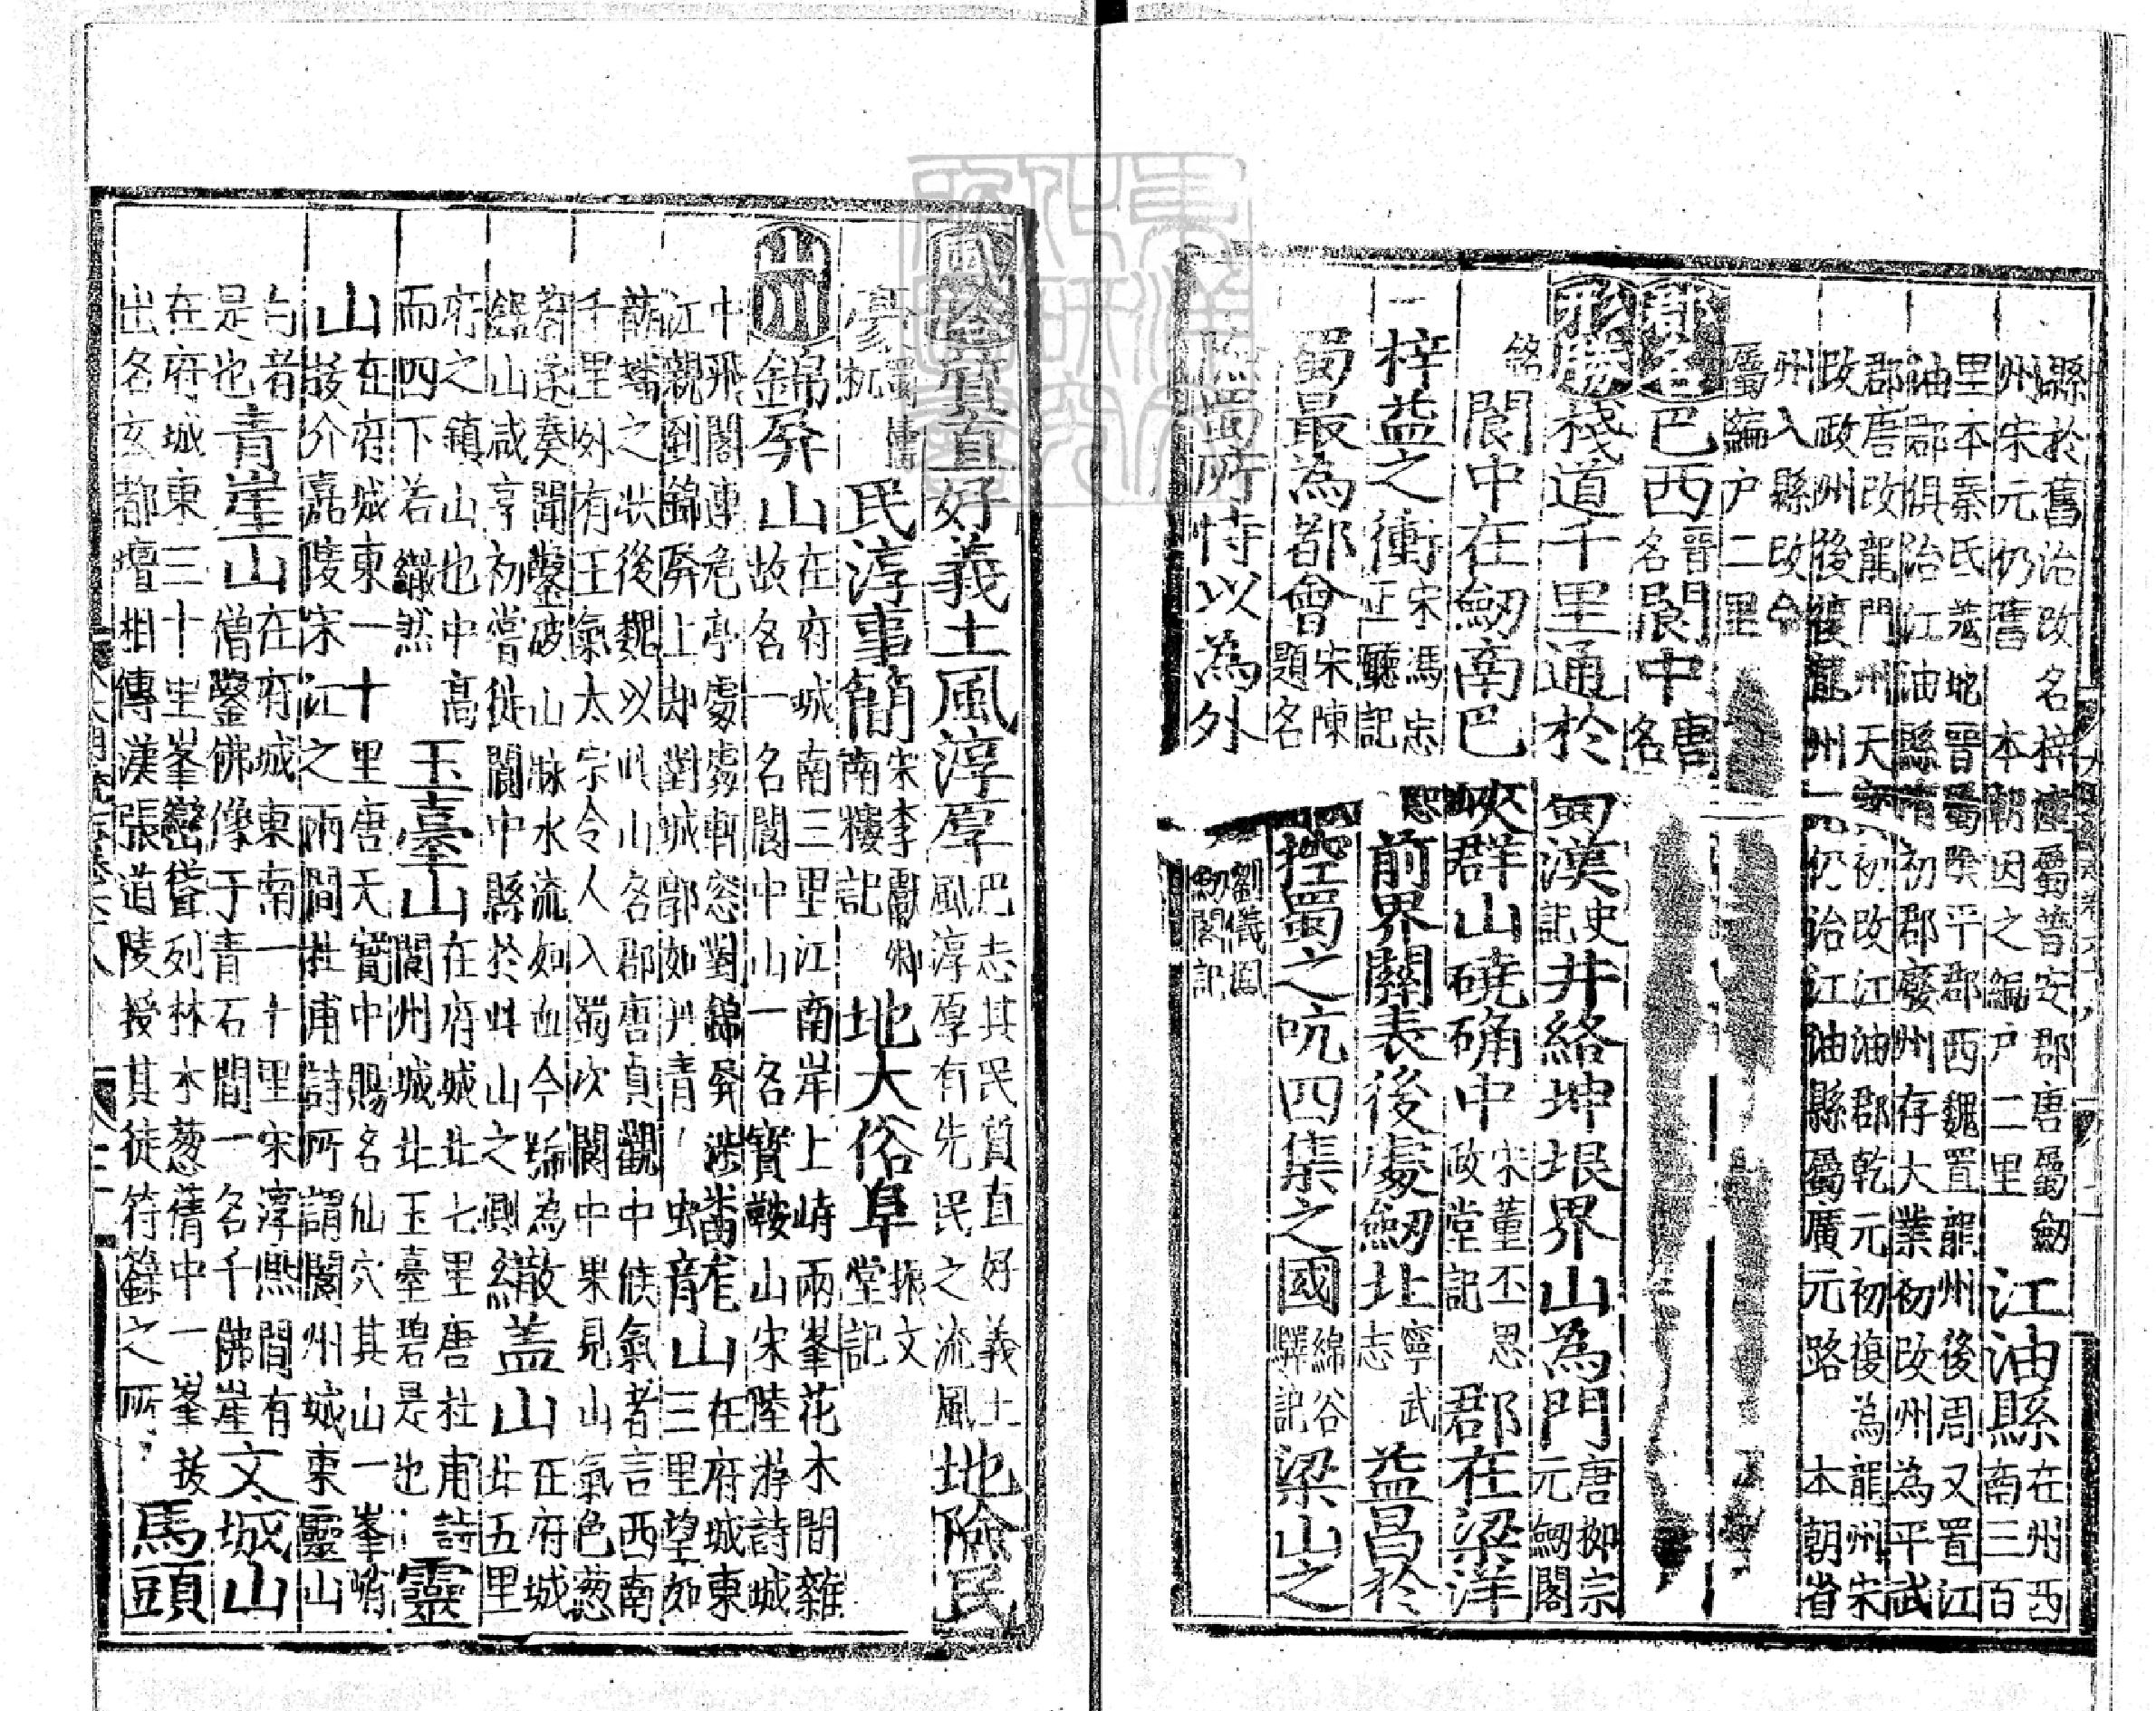 縣於舊治改名梓潼屬普安郡唐屬劒
州宋元仍舊 本朝因之編戶二里
江油縣
在州西
南三百
里本秦氐羌地晉蜀陰平郡西魏置龍州後周又置江
油郡俱治江油縣隋初郡廢州存大業初改州為平武
郡唐改龍門州天寶初改江油郡乾元初復為龍州宋
改政州後復龍州仍治江油縣屬廣元路 本朝省
州入縣改今
屬編戶二里
郡名
巴西
晉
名
閬中
唐
名
形勝
棧道千里通於蜀漢
史
記
井絡坤垠界山為門
唐柳宗
元劒閣
銘
閬中在劒南巴峽群山磽确中
宋董丕思
政堂記
郡在梁洋
梓益之衝
宋馮忠恕
正聽記
前界關表後處劒北
寧武
志
益昌於
蜀最為都會
宋陳
題名
控蜀之吭四集之國
綿谷
驛記
梁山之
險蜀所恃以為外
劉儀鳳
劒閣記
風俗
質直好義土風淳厚
巴志其民質直好義土
風淳厚有先民之流風
地險民
豪
蜀檮
杌
民淳事簡
宋李獻卿
南樓記
地大俗阜
振文
堂記
山川
錦屏山
在府城南三里江南岸上峙兩峯花木間雜
故名一名閬中山一名寶鞍山宋陸游詩城
中飛閣連危亭處處軒窓對錦屏涉
江親到錦屏上却對城郭如丹青
蟠龍山
在府城東
三里望如
龍蟠之狀後魏以此山名郡唐貞觀中候氣者言西南
千里外有王氣太宗令人入蜀次閬中果見山氣色葱
蔚遂奏聞鑿破山脉水流如血今號為
鋸山咸亨初嘗徙閬中縣於此山之側
繖蓋山
在府城
北五里
府之鎮山也中高
而四下若繖然
玉臺山
在府城北七里唐杜甫詩
閬州城北玉臺碧是也
靈
山
在府城東一十里唐天寶中賜名仙穴其山一峯峭
拔介嘉陵宋江之兩間杜甫詩所謂閬州城東靈山
白者
是也
青崖山
在府城東南一十里宋淳熙間有
僧鑿佛像于青石間一名千佛崖
文城山
在府城東三十里峯巒聳列林木葱蒨中一峯拔
出名玄都壇相傳漢張道陵授其徒符籙之所
馬頭